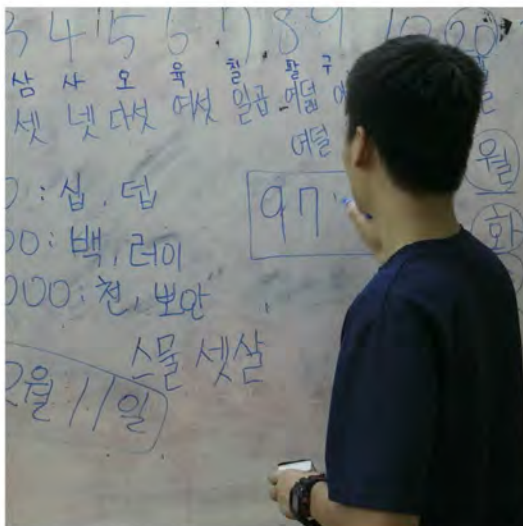 3 4 5 6 7 8 9 10 20
삼 사 오 육 칠 팔 구
셋 넷 다섯 여섯 일곱 여덟
여덜
월
0 : 십, 덥
97
화
00 : 백, 러이
000 : 천, 뽀안
스물 셋살
2월 11일